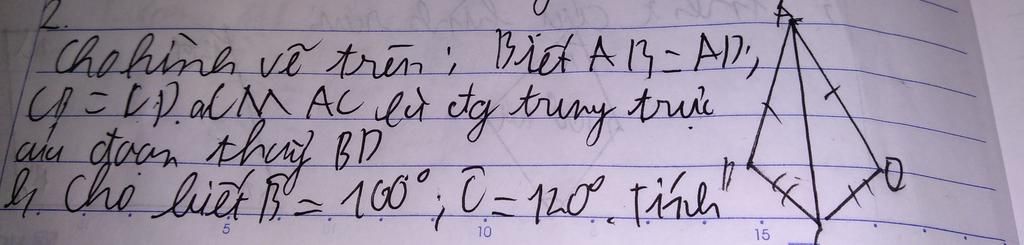 2.
Cho hình vẽ trên; Biết AB = AD;
CB = CD. a CM AC là đg trung trực
của đoạn thẳng BD
b. Cho biết B̂ = 100°; Ĉ = 120°. Tính
A
B
D
C
5 10 15